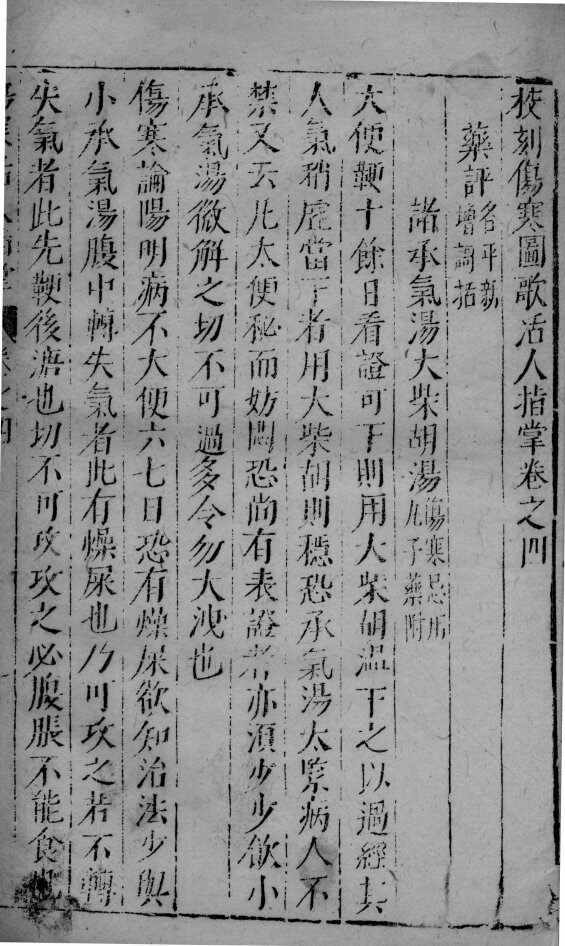 校刻傷寒圖歌活人指掌卷之四
藥評
名平新
增謌括
諸承氣湯大柴胡湯
傷寒忌用
丸子藥附
大便鞕十餘日看證可下則用大柴胡温下之以過經其
人氣稍虛當下者用大柴胡則穩恐承氣湯太緊病人不
禁又云凡大便秘而妨悶恐尚有表證者亦須少少飲小
承氣湯微解之切不可過多令勿大洩也
傷寒論陽明病不大便六七日恐有燥屎欲知治法少與
小承氣湯腹中轉失氣者此有燥屎也乃可攻之若不轉
失氣者此先鞕後溏也切不可攻攻之必腹脹不能食也